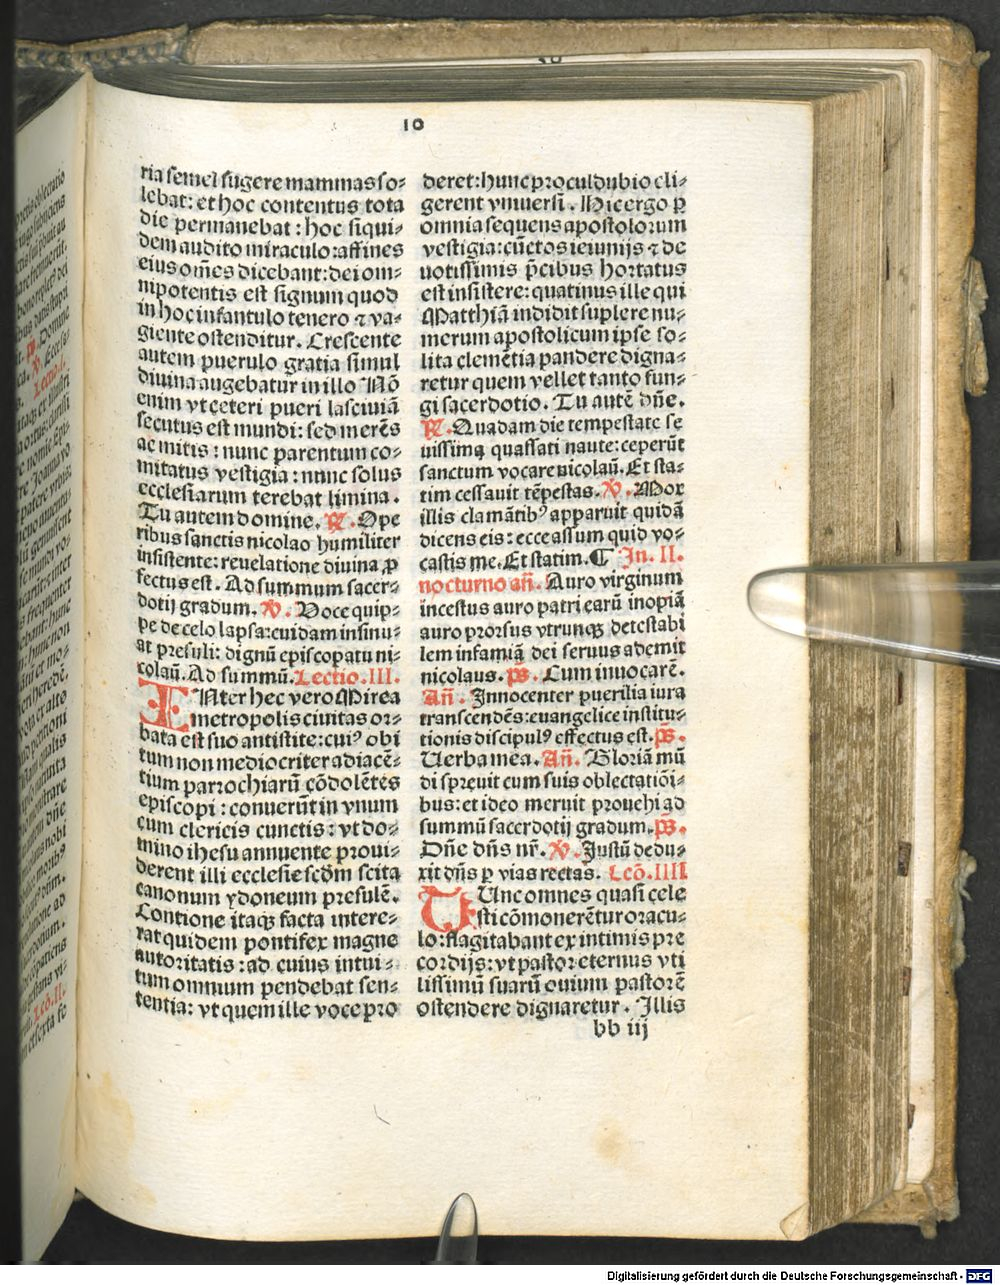 10
ria semel sugere mammas so⸗
lebat: et hoc contentus tota
die permanebat: hoc siqui⸗
dem audito miraculo: affines
eius om̄es dicebant: dei om⸗
nipotentis est signum quod
in hoc infantulo tenero ⁊ va⸗
giente ostenditur. Crescente
autem puerulo gratia simul
diuina augebatur in illo Nō
enim vt ceteri pueri lasciuiā
secutus est mundi: sed merēs
ac mitis: nunc parentum co⸗
mitatus vestigia: nunc solus
ecclesiarum terebat limina.
Tu autem domine. ℟. Ope
ribus sanctis nicolao humiliter
insistente: reuelatione diuina ꝓ
fectus est. Ad summum sacer⸗
dotij gradum. ℣. Voce quip⸗
pe de celo lapsa: cuidam insinu⸗
at presuli: dignū episcopatu ni⸗
colaū. Ad summū. Lectio. III.
INter hec vero Mirea
metropolis ciuitas or⸗
bata est suo antistite: cuiꝰ obi
tum non mediocriter adiacē⸗
tium parrochiarū cōdolētes
episcopi: conuerūt in vnum
cum clericis cunctis: vt do⸗
mino ihesu annuente proui⸗
derent illi ecclesie scd̄m scita
canonum ydoneum presulē.
Contione itaqꝫ facta intere⸗
rat quidem pontifex magne
autoritatis: ad cuius intui⸗
tum omnium pendebat sen⸗
tentia: vt quem ille voce pro
deret: hunc proculdubio eli⸗
gerent vniuersi. Hic ergo ꝑ
omnia sequens apostolorum
vestigia: cūctos ieiunijs ⁊ de
uotissimis p̄cibus hortatus
est insistere: quatinus ille qui
Matthiā indidit suplere nu⸗
merum apostolicum ipse so⸗
lita clemētia pandere digna⸗
retur quem vellet tanto fun⸗
gi sacerdotio. Tu autē dn̄e.
℟. Quadam die tempestate se
uissima quassati naute: ceperūt
sanctum vocare nicolaū. Et sta⸗
tim cessauit tēpestas. ℣. Mox
illis clamātibꝰ apparuit quidā
dicens eis: ecce assum quid vo⸗
castis me. Et statim. ¶ In. II.
nocturno an̄. Auro virginum
incestus auro patri earū inopiā
auro prorsus vtrunqꝫ detestabi
lem infamiā dei seruus ademit
nicolaus. p̄s. Cum inuocarē.
An̄. Innocenter puerilia iura
transcendēs: euangelice institu⸗
tionis discipulꝰ effectus est. p̄s.
Uerba mea. An̄. Gloriā mū
di spreuit cum suis oblectatiōi⸗
bus: et ideo meruit prouehi ad
summū sacerdotij gradum. p̄s.
Dn̄e dn̄s nr̄. ℣. Justū dedu⸗
xit dn̄s ꝑ vias rectas. Lcō. IIII
TUnc omnes quasi cele
sti cōmonerētur oracu⸗
lo: flagitabant ex intimis pre
cordijs: vt pastor eternus vti
lissimū suarū ouium pastorē
ostendere dignaretur. Illis
bb iij
Digitalisierung gefördert durch die Deutsche Forschungsgemeinschaft - DFG